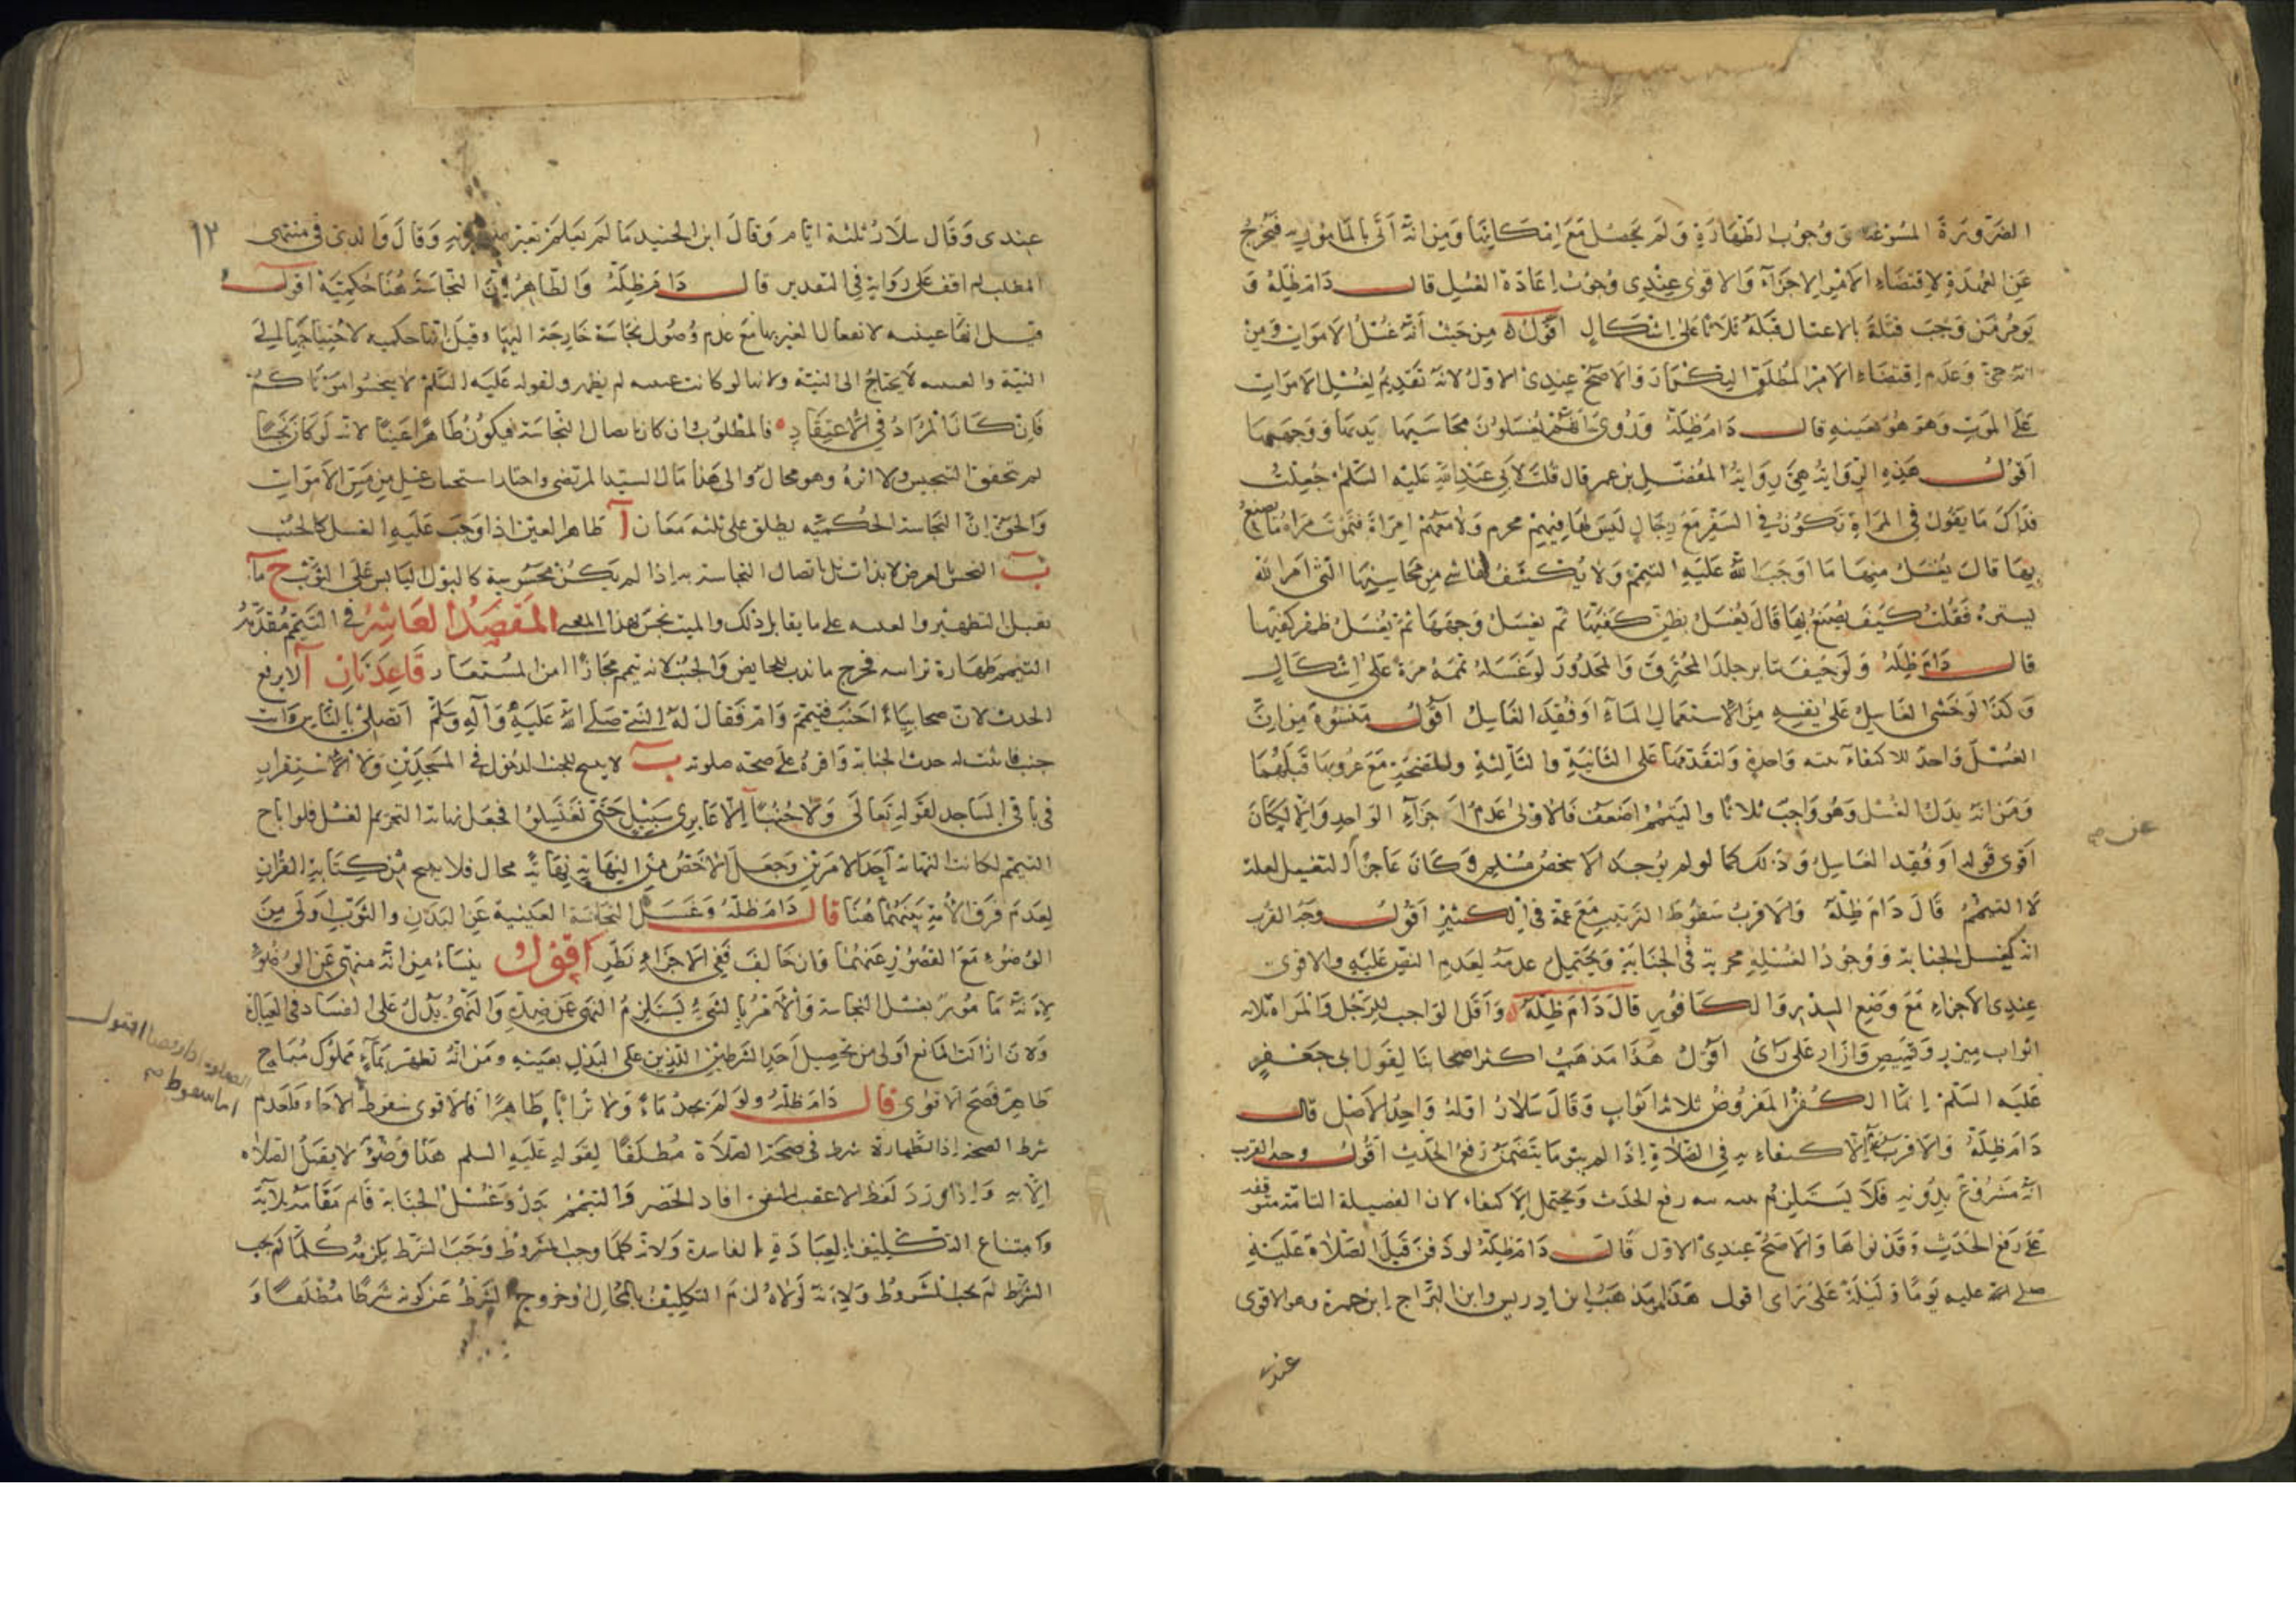 الضرورة المسوغة ووجوب الطهارة ولم يحصل مع امكانها ومن انه اتى بالمامور به فيخرج
عن العهدة لاقتضاء الامر الاجزاء والاقوى عندي وجوب اعادة الغسل قال دام ظله و
يؤمر من وجب قتله بالاغتسال قبله ثلاثا على اشكال اقول من حيث أنه غسل الاموات ومن
انه حي وعدم اقتضاء الامر المطلق التكرار والاصح عندي الاول لانه تقديم لغسل الاموات
على الموت وهو هو بعينه قال دام ظله وروي انهم يغسلون محاسنها يديها ووجهها
اقول هذه الرواية هي رواية المفضل بن عمر قال قلت لابي عبد الله عليه السلم جعلت
فداك ما يقول في المراة تكون في السفر مع رجال ليس لها فيهم محرم ولا معهم امراة فتموت المراة ما يصنع
بها قال يغسل منها ما اوجب الله عليه التيمم ولا يكشف لها شي من محاسنها التي امر الله
بستره فقلت كيف يصنع بها قال يغسل بطن كفيها ثم يغسل وجهها ثم يغسل ظهر كفيها
قال دام ظله ولو خيف تناثر جلد المحترق والمجدور لو غسله يممه مرة على اشكال
وكذا لو خشي الغاسل على نفسه من استعمال الماء او فقد الغاسل اقول منشؤه من ان
الغسل واحد للاكتفاء بنية واحدة ولتقدمها على الثانية والثالثة مع عروها قبلهما
ومن انه بدل الغسل وهو واجب ثلاثا والتيمم اضعف فالاولى عدم اجزاء الواحد والا لكان
اقوى قوله او فقد الغاسل وذلك كما لو لم يوجد الا شخص مسلم وكان عاجزا
لا التيمم قال دام ظله والاقرب سقوط الترتيب مع غمسه في الكثير اقول وجه القرب
انه كغسل الجنابة ووجود الغسلة مجزية في الجنابة ويحتمل عدمه لعدم النص عليه والاقوى
عندي الاجزاء مع وضع السدر والكافور قال دام ظله واقل الواجب للرجل والمراة ثلاثة
اثواب ميزر وقميص وازار على راى اقول هذا مذهب اكثر اصحابنا لقول ابي جعفر
عليه السلم انما الكفن المفروض ثلاثة اثواب وقال سلار اقله واحد الاصل قال
دام ظله والاقرب عدم الاكتفاء به في الصلاة اذا لم ينو ما يتضمن رفع الحدث اقول وجه القرب
انه مشروع بدونه فلا يستلزم نيته نية رفع الحدث ويحتمل الاكتفاء لان الفضيلة التامة متوقفة
على رفع الحدث وقد نواها والاصح عندي الاول قال دام ظله لو دفن قبل الصلاة عليه
صلى عليه يوما وليلة على راى اقول هذا مذهب ابن ادريس وابن البراج ابن حمزة وهو الاقوى
عندي
عن صح
١٢
عندي وقال سلار ثلثة ايام وقال ابن الجنيد ما لم يعلم تغير صورته وقال والدي في منتهى
المطلب لم اقف على رواية في التقدير قال دام ظله والظاهر ان النجاسة هنا حكمية اقول
قيل انها عينية لانفعال الغير بها مع عدم وصول نجاسة خارجة اليها وقيل انها حكمية لاحتياجها الى
النية والعينية لا يحتاج الى النية ولانها لو كانت عينية لم يطهر ولقوله عليه السلم لا ينجسوا موتاكم
فان كان المراد في الاعتقاد فالمطلوب وان كان اتصال النجاسة فيكون طاهرا عينا لانه لو كان نجسا
لم تحقق التنجيس ولا اثره وهو محال والى هذا مال السيد المرتضى واختار استحباب غسل من مس الاموات
والحق ان النجاسة الحكمية يطلق على ثلثة معان آ طاهر العين اذا وجب عليه الغسل كالجنب
ب النجس بالعرض لا بذاته بل باتصال النجاسة به اذا لم يكن محسوسة كالبول اليابس على الثوب ح ما
يقبل التطهير والعينية على ما يقابل ذلك والميت نجس بهذا المعنى المقصد العاشر في التيمم مقدمة
التيمم طهارة ترابية فخرج ما ندب للحايض والجنب لانه تيمم مجازا من المستعار قاعدتان آ لا يرفع
الحدث لان صحابيا اجنب فتيمم وام فقال له النبي صلى الله عليه وآله وسلم اتصلى بالناس وانت
جنب فاثبت له حدث الجنابة واقره على صحة صلوته ب لا يبيح للجنب الدخول في المسجدين ولا الاستقرار
في باقي المساجد لقوله تعالى ولا جنبا الا عابري سبيل حتى تغتسلوا فجعل نهاية التحريم الغسل فلو اباح
التيمم لكانت النهاية احد الامرين وجعل الاخص من النهاية نهاية محال فلا يبيح مس كتابة القرآن
لعدم فرق الامة بينهما هنا قال دام ظله وغسل النجاسة العينية عن البدن والثوب اولى من
الوضوء مع القصور عنهما فان خالف ففي الاجزاء نظر اقول ينشاء من انه منهي عن الوضوء
لانه مامور بغسل النجاسة والامر بالشيء يستلزم النهي عن ضده والنهي يدل على الفساد في العبادة
ولان ازالة المانع اولى من تحصيل احد الشرطين الذين على البدل بعينه ومن انه تطهر بماء مملوك مباح
طاهر فصح الاقوى قال دام ظله ولو لم يجد ماء ولا ترابا طاهرا فالاقوى سقوط الاداء فلعدم
شرط الصحة اذ الطهارة شرط في صحة الصلاة مطلقا لقوله عليه السلم هذا وضوء لا يقبل الصلاة
الا به واذا ورد لفظ الا عقيب النفي افاد الحصر والتيمم بدل وغسل الجنابة قام مقامه بلاية
وامتناع التكليف بالعبادة الفاسدة ولانه كلما وجب المشروط وجب الشرط يلزمه كلما لم يجب
الشرط لم يجب المشروط ولانه لولاه لزم التكليف بالمحال او خروج الشرط عن كونه شرطا مطلقا و
الصلوة اداء وقضاء اقول
اما سقوط صح